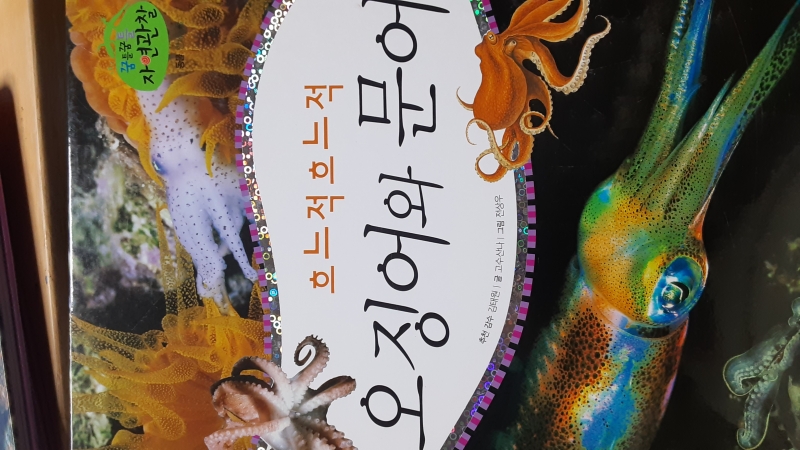 꿈틀꿈틀
자연관찰
동물
흐느적 흐느적
오징어와 문어
추천 감수 김태원 | 글 고수산나 | 그림 전상우